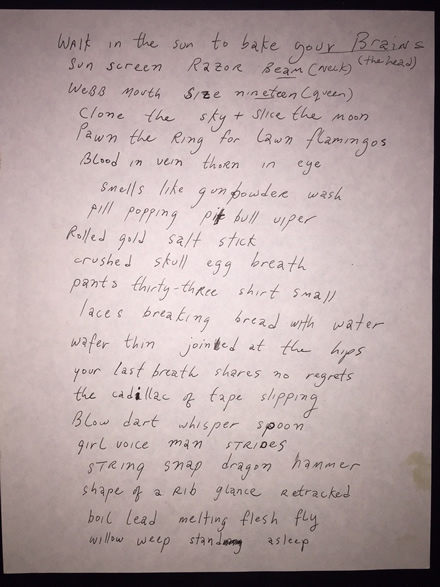 WALK in the sun to bake your Brains
Sun screen RAZOR Beam (neck) (the head)
WeBB mouth SIZe nineteen (queen)
Clone the sky + slice the moon
Pawn the Ring for lawn flamingos
Blood in vein thorn in eye
smells like gunpowder wash
pill popping pit bull viper
Rolled gold salt stick
crushed skull egg breath
pants thirty-three shirt small
laces breaking bread with water
wafer thin jointed at the hips
your last breath shares no regrets
the cadillac of tape slipping
Blow dart whisper spoon
girl voice man STRIDES
STRING snap dragon hammer
shape of a Rib glance Retracked
boil lead melting flesh fly
willow weep standing asleep